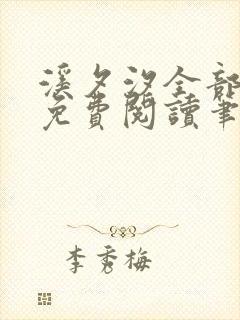 溪夕汐全部
免費閱讀筆
李秀梅